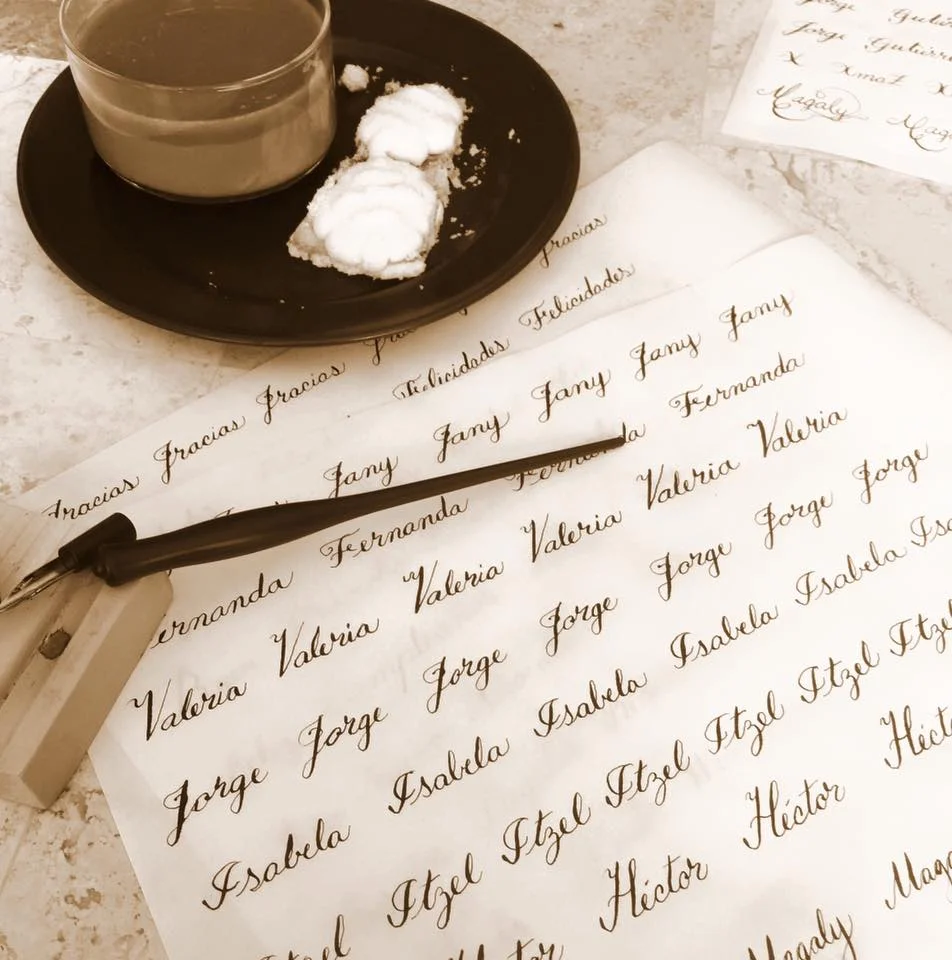 Jorge
Jorge Gutiérr
X X
Magaly Ma
Gracias Gracias Gracias Gracias
Felicidades Felicidades
Jany Jany Jany Jany Jany
ernanda Fernanda Fernanda
Valeria Valeria Valeria Valeria Valeria Valeria
Jorge Jorge Jorge Jorge Jorge Jorge Jorge
Isabela Isabela Isabela Isabela Isabela Isa
tzel Itzel Itzel Itzel Itzel Itzel Itzel
Héctor Héctor Héct
Magaly Mag